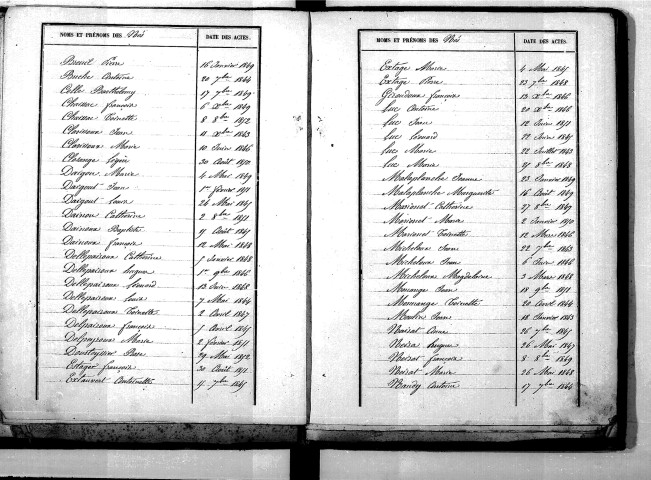 NOMS ET PRÉNOMS DES Nés DATE DES ACTES.
Breuil Pierre 16 Janvier 1849
Buche Antoine 20 7bre 1844
Celle Barthélemy 17 7bre 1849
Chaissac françois 6 Xbre 1849
Chaissac Toinette 8 8bre 1872
Claissoux Jean 11 Xbre 1843
Claissoux Marie 10 Juin 1846
30 Août 1870
Daigoux Marie 4 Mai 1849
Daigout Jean 1er février 1871
Daigout Louis 26 Mai 1847
Dainoux Catherine 2 9bre 1871
Dainoux Baptiste 11 Août 1847
Dainoux françois 12 Mai 1848
Delspeiroux Catherine 1 Janvier 1848
Delspeiroux hugues 1er 9bre 1846
Delspeiroux Léonard 13 Juin 1868
Delspeiroux Louis 7 Mai 1844
Delspeiroux Toinette 2 Avril 1847
Delspeiroux françois 1 Avril 1845
Delspeyroux Marie 2 février 1871
29 Mai 1872
Estager françois 30 Août 1871
Extauvert Antoinette 11 7bre 1845
NOMS ET PRÉNOMS DES Nés DATE DES ACTES.
Extage Marie 4 Mai 1845
Extage Pierre 23 7bre 1848
Girondoux françois 13 Xbre 1846
Luc Antoine 20 Xbre 1846
Luc Jean 12 Juin 1871
Luc Léonard 22 Juin 1845
Luc Marie 22 Juillet 1843
Luc Marie 21 8bre 1848
Malaplanche Jeanne 23 Janvier 1849
Malaplanche Marguerite 16 Août 1849
Marionet Catherine 27 8bre 1849
Marionet Marie 2 Janvier 1870
Marionet Toinette 12 Mars 1846
Micheloux Jean 22 7bre 1843
Micheloux Jean 6 Juin 1846
Micheloux Magdeleine 3 Mars 1848
Monange Jean 18 9bre 1871
Monmange Toinette 20 Avril 1844
Moulin Jean 18 Janvier 1843
Noirat Anne 26 7bre 1847
Noirat hugues 26 Mai 1847
Noirat françois 8 8bre 1849
Noirat Marie 26 Mai 1848
Naudy Antoine 17 7bre 1844